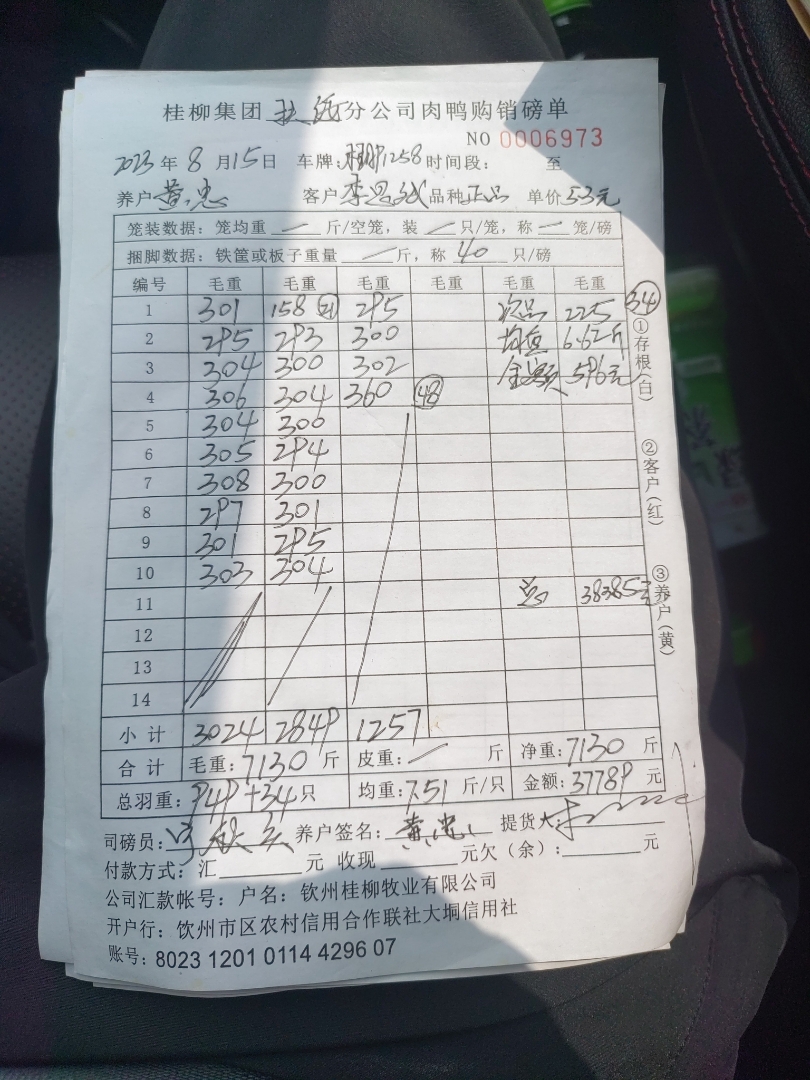 桂柳集团 分公司肉鸭购销磅单
NO 0006973
2023年8月15日 车牌: 1258 时间段: 至
养户 黄忠 客户 李 品种 正品 单价 5.3元
笼装数据: 笼均重 — 斤/空笼, 装 — 只/笼, 称 — 笼/磅
捆脚数据: 铁筐或板子重量 — 斤, 称 40 只/磅
编号 毛重 毛重 毛重 毛重 毛重 毛重
1 301 158 21 295 次品 225 34
2 295 293 300 均重 6.62斤
3 304 300 302 金额 596元
4 306 304 360 48
5 304 300
6 305 294
7 308 300
8 297 301
9 301 295
10 303 304
11 总 38385元
12
13
14
小计 3024 2849 1257
合计 毛重: 7130 斤 皮重: — 斤 净重: 7130 斤
总羽重: 949+34 只 均重: 7.51 斤/只 金额: 37789 元
司磅员: 养户签名: 黄忠 提货人:
付款方式: 汇 元 收现 元欠(余): 元
公司汇款帐号: 户名: 钦州桂柳牧业有限公司
开户行: 钦州市区农村信用合作联社大垌信用社
账号: 8023 1201 0114 4296 07
①存根(白)
②客户(红)
③养户(黄)